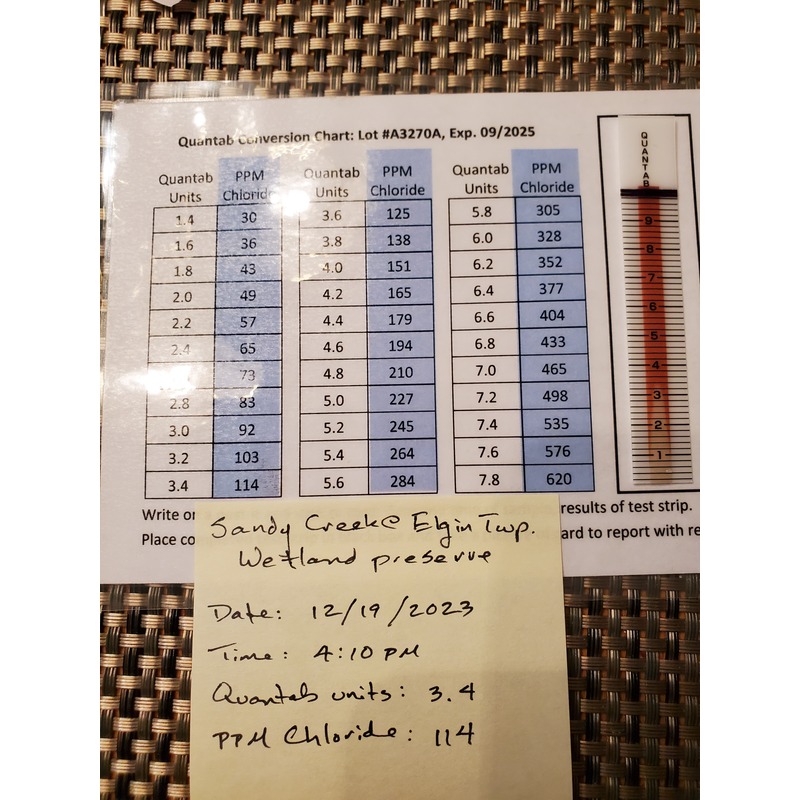 Quantab Conversion Chart: Lot #A3270A, Exp. 09/2025
Quantab Units PPM Chloride Quantab Units PPM Chloride Quantab Units PPM Chloride
1.4 30 3.6 125 5.8 305
1.6 36 3.8 138 6.0 328
1.8 43 4.0 151 6.2 352
2.0 49 4.2 165 6.4 377
2.2 57 4.4 179 6.6 404
2.4 65 4.6 194 6.8 433
73 4.8 210 7.0 465
2.8 83 5.0 227 7.2 498
3.0 92 5.2 245 7.4 535
3.2 103 5.4 264 7.6 576
3.4 114 5.6 284 7.8 620
QUANTAB
9
8
7
6
5
4
3
2
1
Write or results of test strip.
Place co ard to report with re
Sandy Creek@ Elgin Twp.
Wetland preserve
Date: 12/19/2023
Time: 4:10 PM
Quantab units: 3.4
PPM Chloride: 114